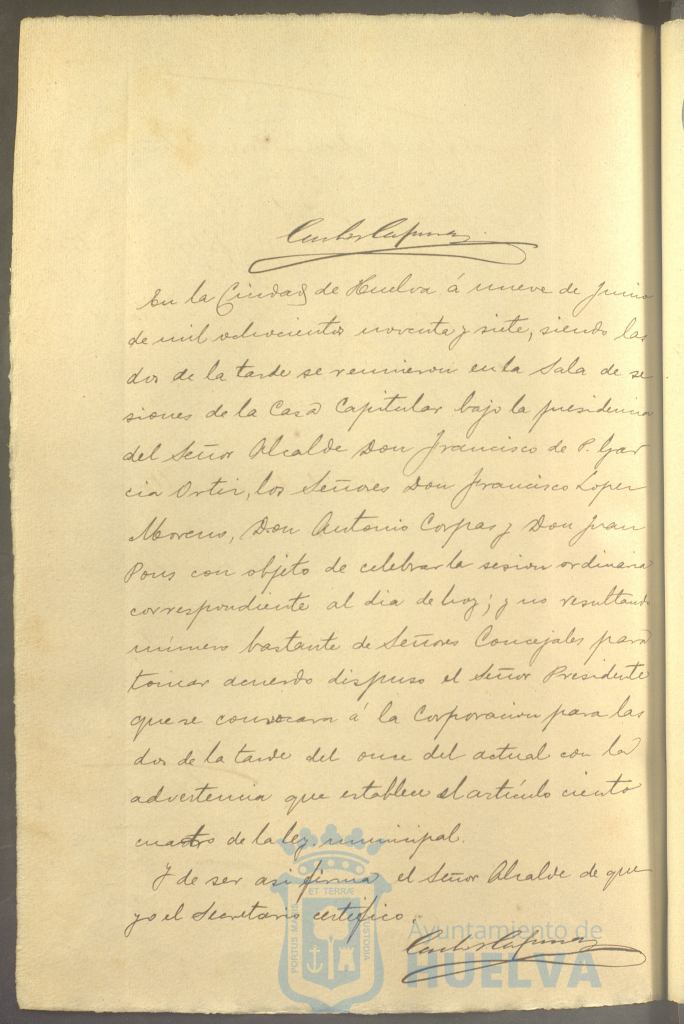 En la Ciudad de Huelva á nueve de Junio
de mil ochocientos noventa y siete, siendo las
dos de la tarde se reunieron en la Sala de se
siones de la Casa Capitular bajo la presidencia
del Señor Alcalde Don Francisco de P. Gar
cia Ortiz, los Señores Don Francisco Lopez
Moreno, Don Antonio Corpas y Don Juan
Pons con objeto de celebrar la sesion ordinaria
correspondiente al dia de hoy; y no resultando
número bastante de Señores Concejales para
tomar acuerdo dispuso el Señor Presidente
que se convocara á la Corporacion para las
dos de la tarde del once del actual con la
advertencia que establece el artículo ciento
cuatro de la ley municipal.
Y de ser asi firma el Señor Alcalde de que
yo el Secretario certifico.
PORTUS MARIS ET TERRÆ CUSTODIA
Ayuntamiento de
HUELVA